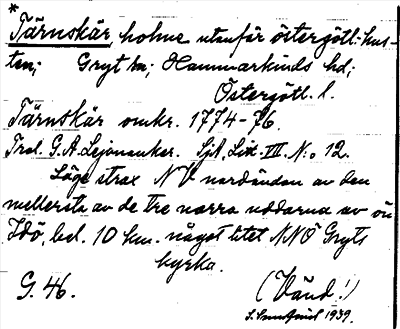 *
Tärnskär, holme utanför östergötl: kus-
ten; Gryt sn; Hammarkinds hd;
Östergötl. l.
Tärnskär omkr. 1774-76.
Trol. G.A. Lejonanker. Sjö. Litt. VII. N:o 12.
Läge strax NV nordändan av den
mellersta av de tre norra uddarna av ön
Idö, bel. 10 km. något litet NNO Gryts
kyrka.
G. 46. (Vänd!)
1939.